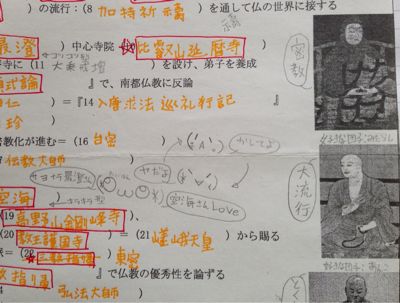 の流行：(8 加持祈禱 ）を通して仏の世界に接する
禱
最澄 ）中心寺院 比叡山延暦寺
寺に (11 大乗戒壇 ）を設け、弟子を養成
』で、南都仏教に反論
＝『14 入唐求法巡礼行記 』
珍
密教化が進む＝ (16 台密 )
伝教大師
かしてよ
ヤだよ
サヨナラ最澄さん
空海さんLove
空海
(19 高野山金剛峰寺 ）、
(20 教王護国寺 ）＝ (21 嵯峨天皇 ）から賜る
東密
』で仏教の優秀性を論ずる
弘法大師
密教
大流行